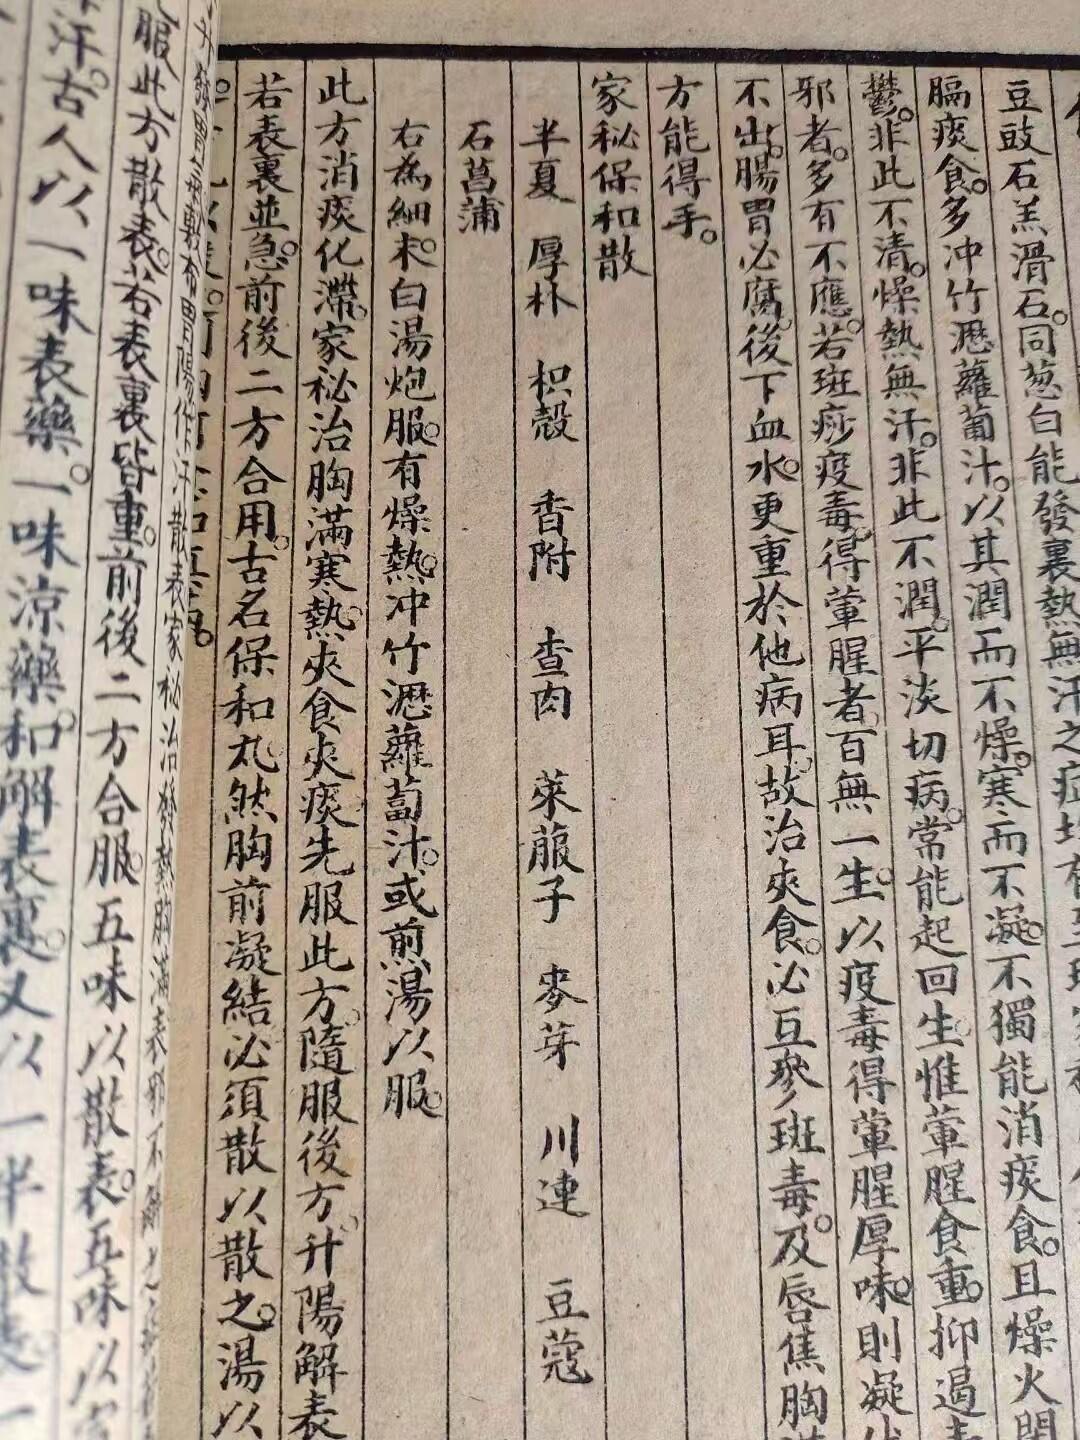 豆豉石羔滑石。同葱白能發裏熱無汗之症
膈痰食。多冲竹瀝蘿蔔汁。以其潤而不燥。寒而不凝。不獨能消痰食。且燥火閉
鬱。非此不清。燥熱無汗。非此不潤。平淡切病。常能起回生。惟葷腥食重。抑遏
邪者。多有不應。若斑痧疫毒。得葷腥者。百無一生。以疫毒得葷腥厚味。則凝
不出。腸胃必腐。後下血水。更重於他病耳。故治夾食。必互參斑毒。及唇焦胸
方能得手。
家秘保和散
半夏 厚朴 枳殼 香附 查肉 萊菔子 麥芽 川連 豆蔻
石菖蒲
右為細末。白湯炮服。有燥熱。冲竹瀝蘿蔔汁。或煎湯以服。
此方消痰化滯。家秘治胸滿寒熱。夾食夾痰。先服此方。隨服後方。升陽解表
若表裏並急。前後二方合用。古名保和丸。然胸前凝結必須散以散之。湯以
升發胃氣敷布胃陽作汗散表家秘治發熱胸滿表邪不
服此方散表。若表裏皆重。前後二方合服。五味以散表。五味以
汗。古人以一味表藥。一味涼藥。和解表裏。又以一半散表。一